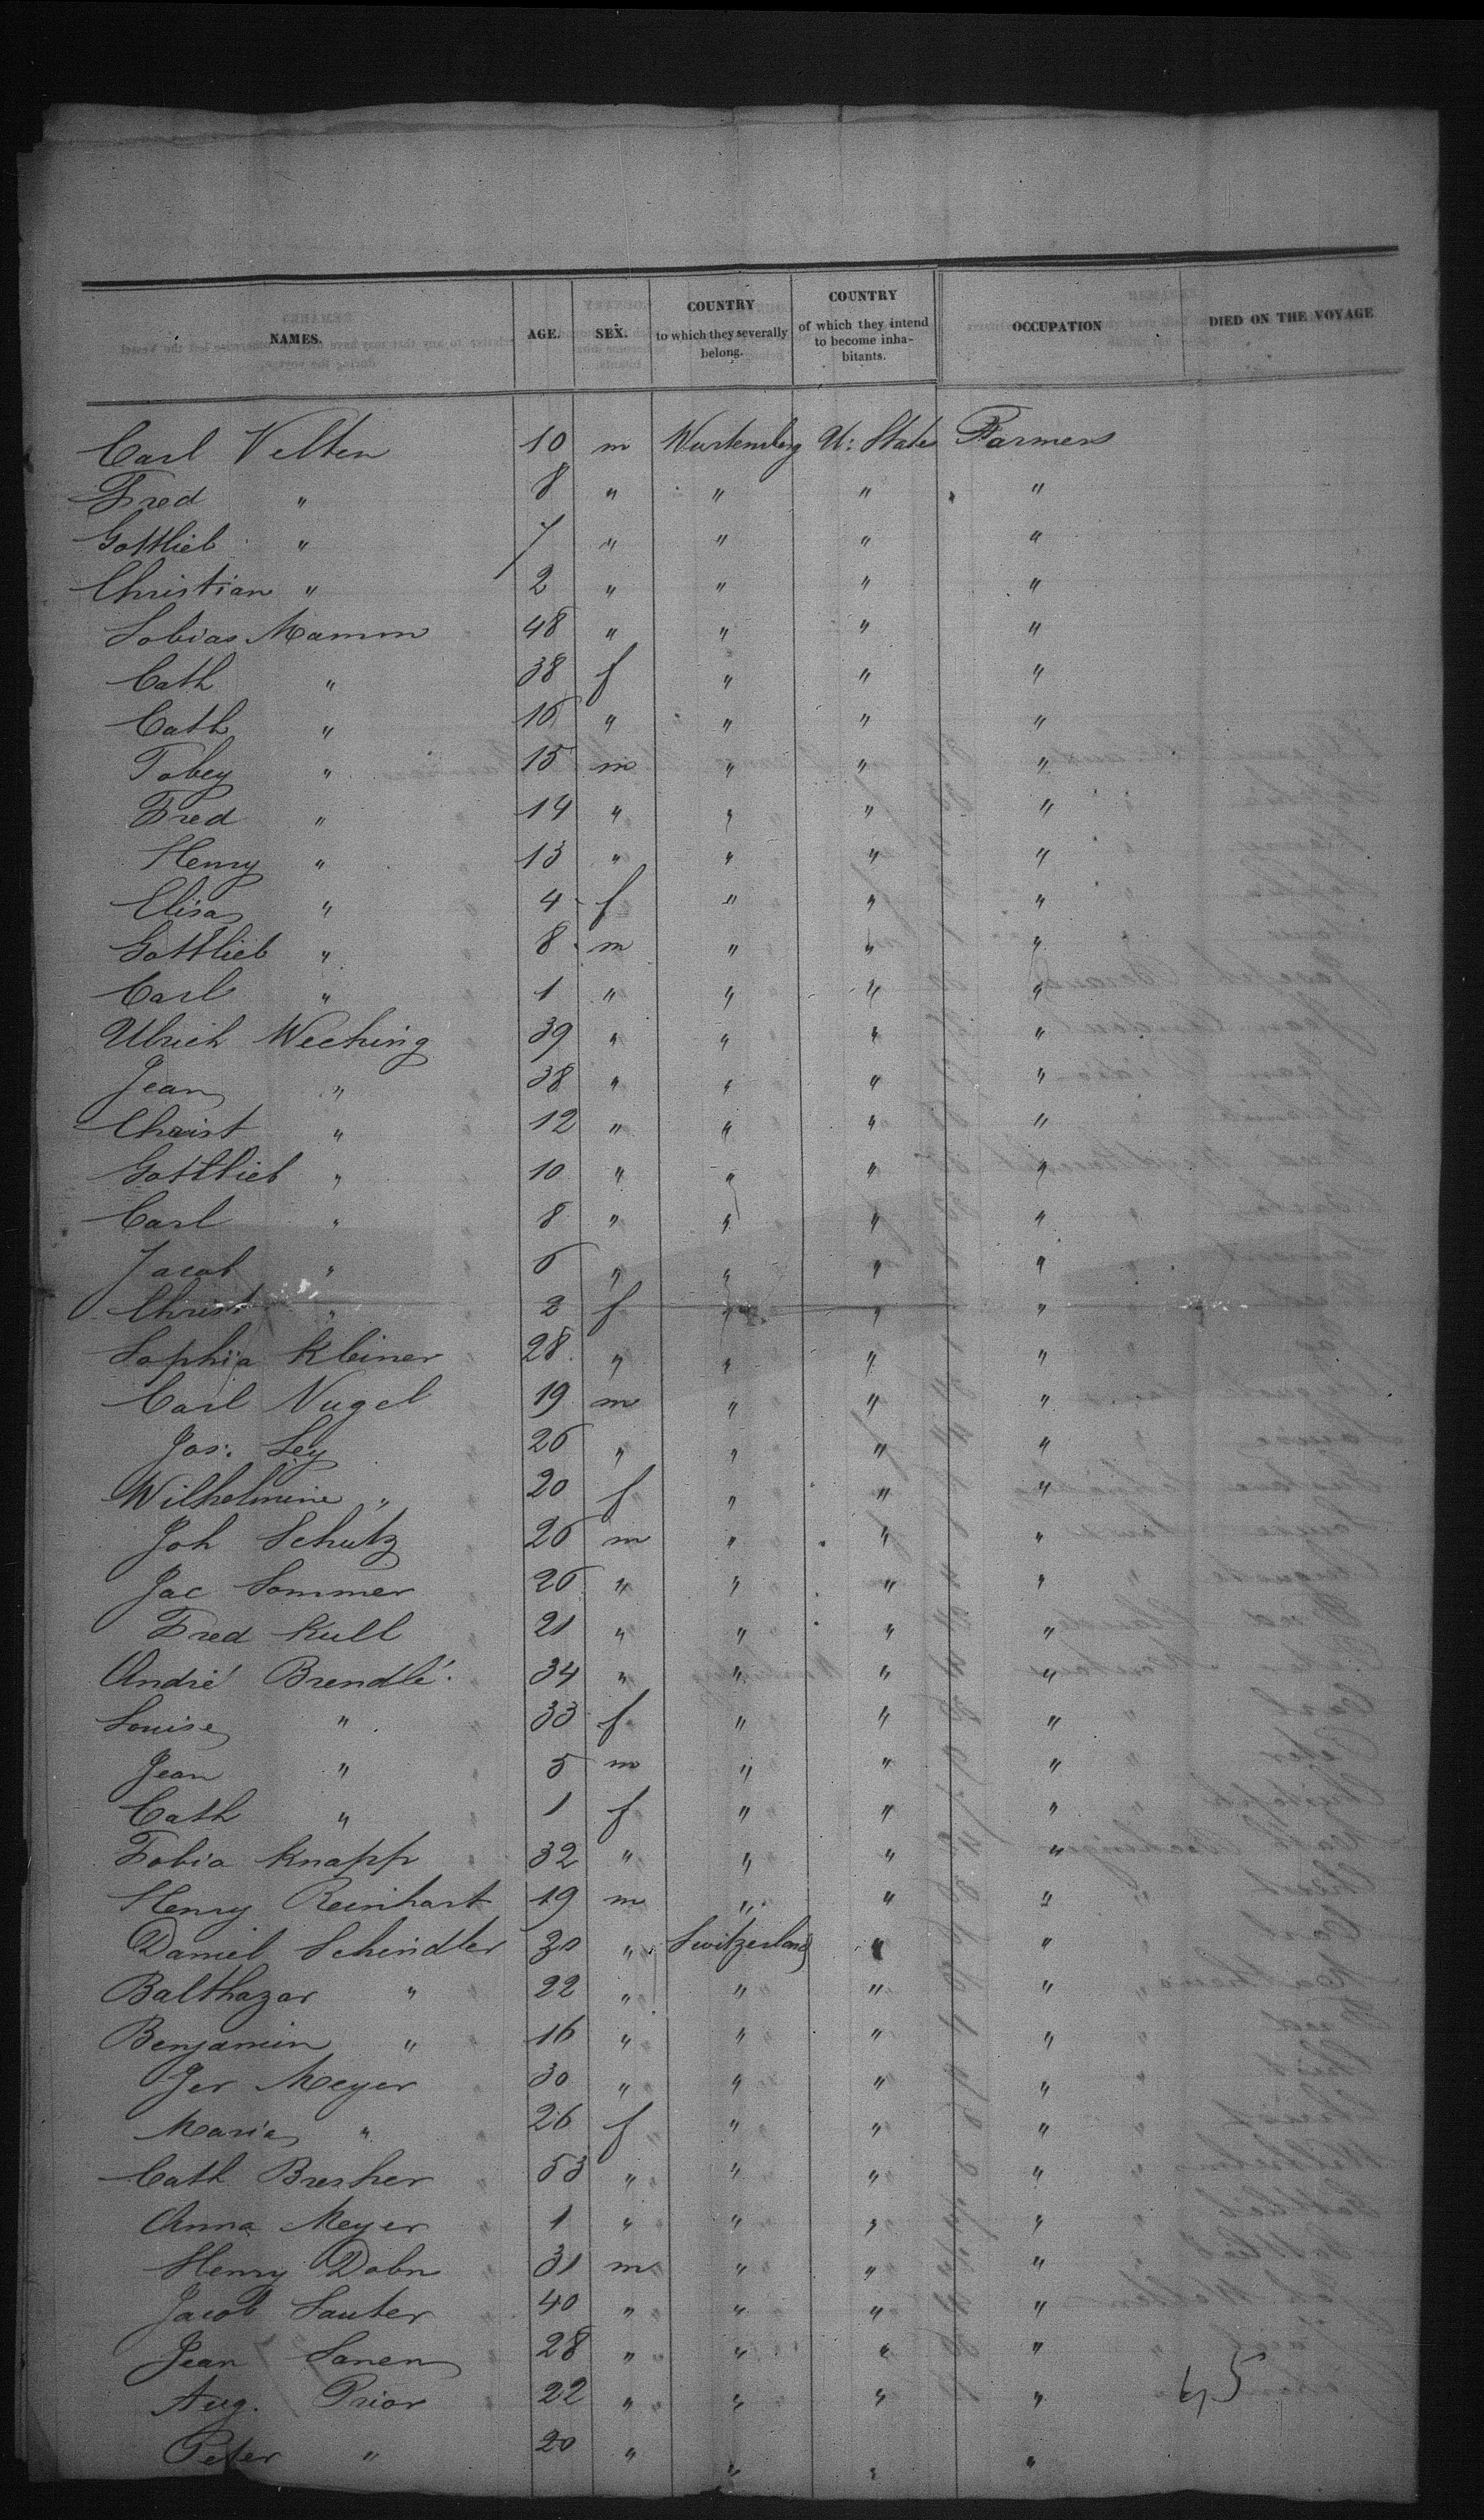 NAMES. AGE. SEX. COUNTRY to which they severally belong. COUNTRY of which they intend to become inhabitants. OCCUPATION DIED ON THE VOYAGE
Carl Velten 10 m Wurtemberg U: States Farmers
Fred " 8 " " " "
Gottlieb " 7 " " " "
Christian " 2 " " " "
Tobias Mamm 48 " " " "
Cath " 38 f " " "
Cath " 16 " " " "
Tobey " 15 m " " "
Fred " 14 " " " "
Henry " 13 " " " "
Elisa " 4 f " " "
Gottlieb " 8 m " " "
Carl " 1 " " " "
Ulrich Weching 39 " " " "
Jean " 38 " " " "
Christ " 12 " " " "
Gottlieb " 10 " " " "
Carl " 8 " " " "
Jacob " 6 " " " "
Christ " 2 f " " "
Sophia Kleiner 28 " " " "
Carl Nugel 19 m " " "
Jos: Ley 26 " " " "
Wilhelmine " 20 f " " "
Joh Schutz 26 m " " "
Jac Sommer 26 " " " "
Fred Kull 21 " " " "
André Brendlé 34 " " " "
Louise " 33 f " " "
Jean " 5 m " " "
Cath " 1 f " " "
Tobia Knapp 32 " " " "
Henry Reinhart 19 m " " "
Daniel Schindler 30 " Switzerland " "
Balthazar " 22 " " " "
Benjamin " 16 " " " "
Jer Meyer 30 " " " "
Maria " 26 f " " "
Cath Bresher 53 " " " "
Anna Meyer 1 " " " "
Henry Dobn 31 m " " "
Jacob Sauter 40 " " " "
Jean Sanen 28 " " " "
Aug. Prior 22 " " " "
45
Peter " 20 " " " "